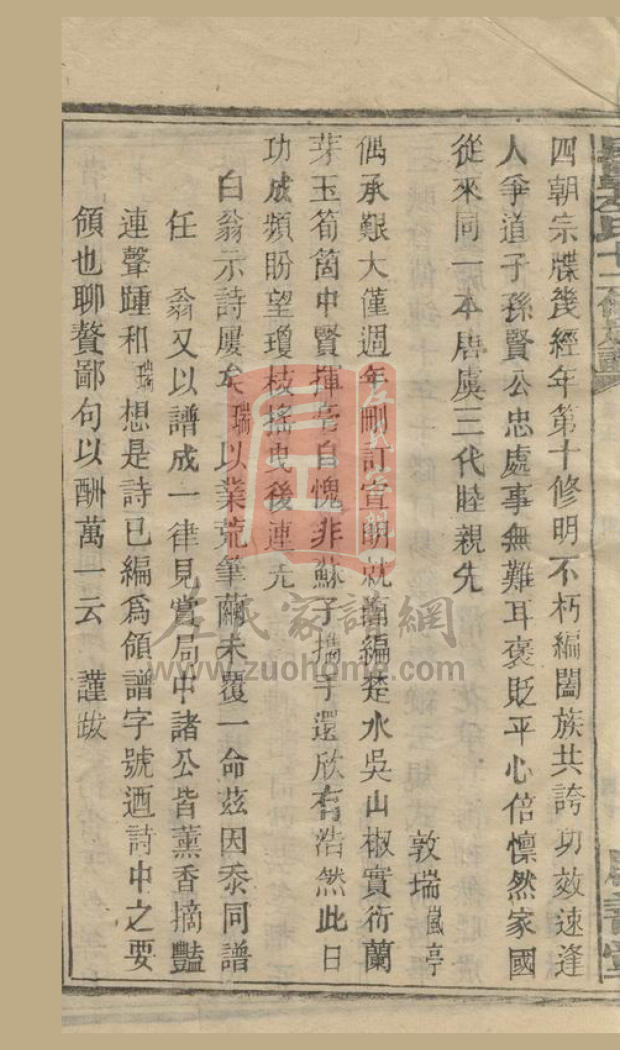 四朝宗牒幾經年第十修明不朽編闔族共誇功效速逢
人爭道子孫賢公忠處事無難耳褒貶平心倍懍然家國
從來同一本唐虞三代睦親先
敦瑞嵐亭
偶承艱大僅週年刪訂宣明就簡編楚水吳山椒實衍蘭
芽玉筍箇中賢揮毫自愧非蘇子擕手還欣有浩然此日
功成頻盼望瓊枝搖曳後連先
白翁示詩屢矣瑞以業荒筆繭未覆一命茲因忝同譜
任 翁又以譜成一律見嘗局中諸公皆薰香摘豔
連聲踵和瑞想是詩已編爲領譜字號迺詩中之要
領也聊贅鄙句以酬萬一云 謹跋
左氏家譜網
www.zuohome.com